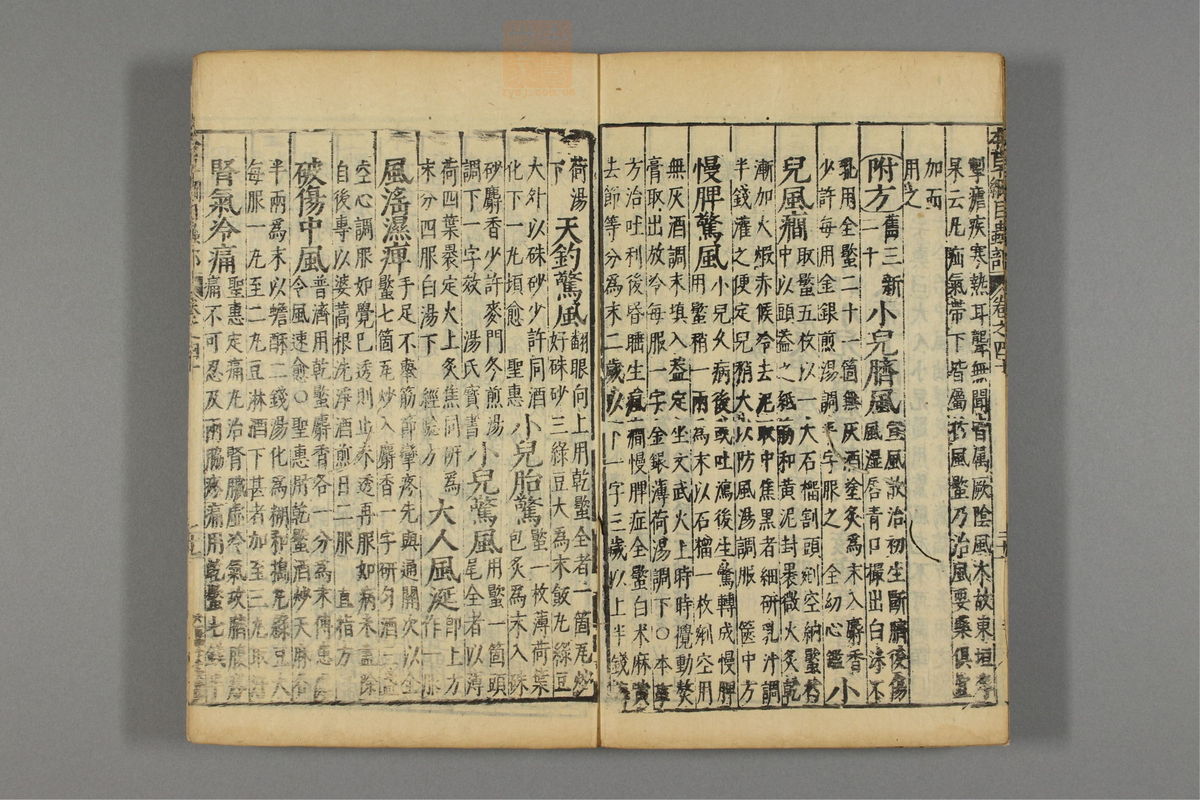 掣瘧疾寒熱耳聾無聞皆屬厥陰風木故東垣李
杲云凡疝氣帶下皆屬於風蠍乃治風要藥俱宜
加而
用之
附方 舊三新一十 小兒臍風 宣風散治初生斷臍後傷風濕唇青口撮出白沫不
乳用全蠍二十一箇無灰酒塗炙為末入麝香少許每用金銀煎湯調半字服之 全幼心鑑 小
兒風癇 取蠍五枚以一大石榴割頭剜空納蠍於中以頭蓋之紙筋和黃泥封裹微火炙乾
漸加火煅赤候冷去泥取中焦黑者細研乳汁調半錢灌之便定兒稍大以防風湯調服 篋中方
慢脾驚風 小兒久病後或吐瀉後生驚轉成慢脾用蠍稍一兩為末以石榴一枚剜空用
無灰酒調末填入蓋定坐文武火上時時攪動熬膏取出放冷每服一字金銀薄荷湯調下〇本事
方治吐利後昏睡生風癇慢脾症全蠍白朮麻黃去節等分為末二歲以下一字三歲以上半錢薄
荷湯下 天釣驚風 翻眼向上用乾蠍全者一箇瓦炒好硃砂三綠豆大為末飯丸綠豆
大外以硃砂少許同酒化下一丸頃愈 聖惠 小兒胎驚 蠍一枚薄荷葉包炙為末入硃
砂麝香少許麥門冬煎湯調下一字效 湯氏寶書 小兒驚風 用蠍一箇頭尾全者以薄
荷四葉裹定火上炙焦同研為末分四服白湯下 經驗方 大人風涎 即上方作一服
風淫濕痺 手足不舉筋節攣疼先與通關次以全蠍七箇瓦炒入麝香一字研勻酒三
空心調服如覺已透則止未透再服如病未盡除自後專以婆蒿根洗淨酒煎日二服 直指方
破傷中風 普濟用乾蠍麝香各一分為末傅患處令風速愈〇聖惠用乾蠍酒炒天麻各
半兩為末以蟾酥二錢湯化為糊和搗丸綠豆大每服一丸至二丸豆淋酒下甚者加至三丸取汗
腎氣冷痛 聖惠定痛丸治腎臟虛冷氣攻臍腹疼痛不可忍及兩脇疼痛用乾蠍七錢半